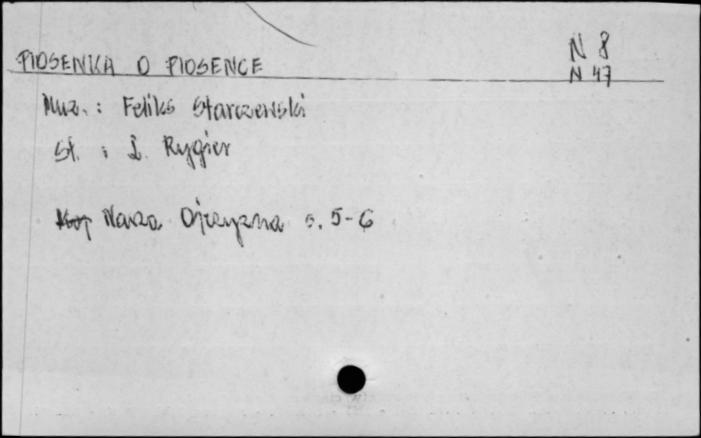 PIOSENKA O PIOSENCE
N 8
N 47
Muz. : Feliks Starczewski
sł. : L. Rygier
Nasza Ojczyzna s. 5-6